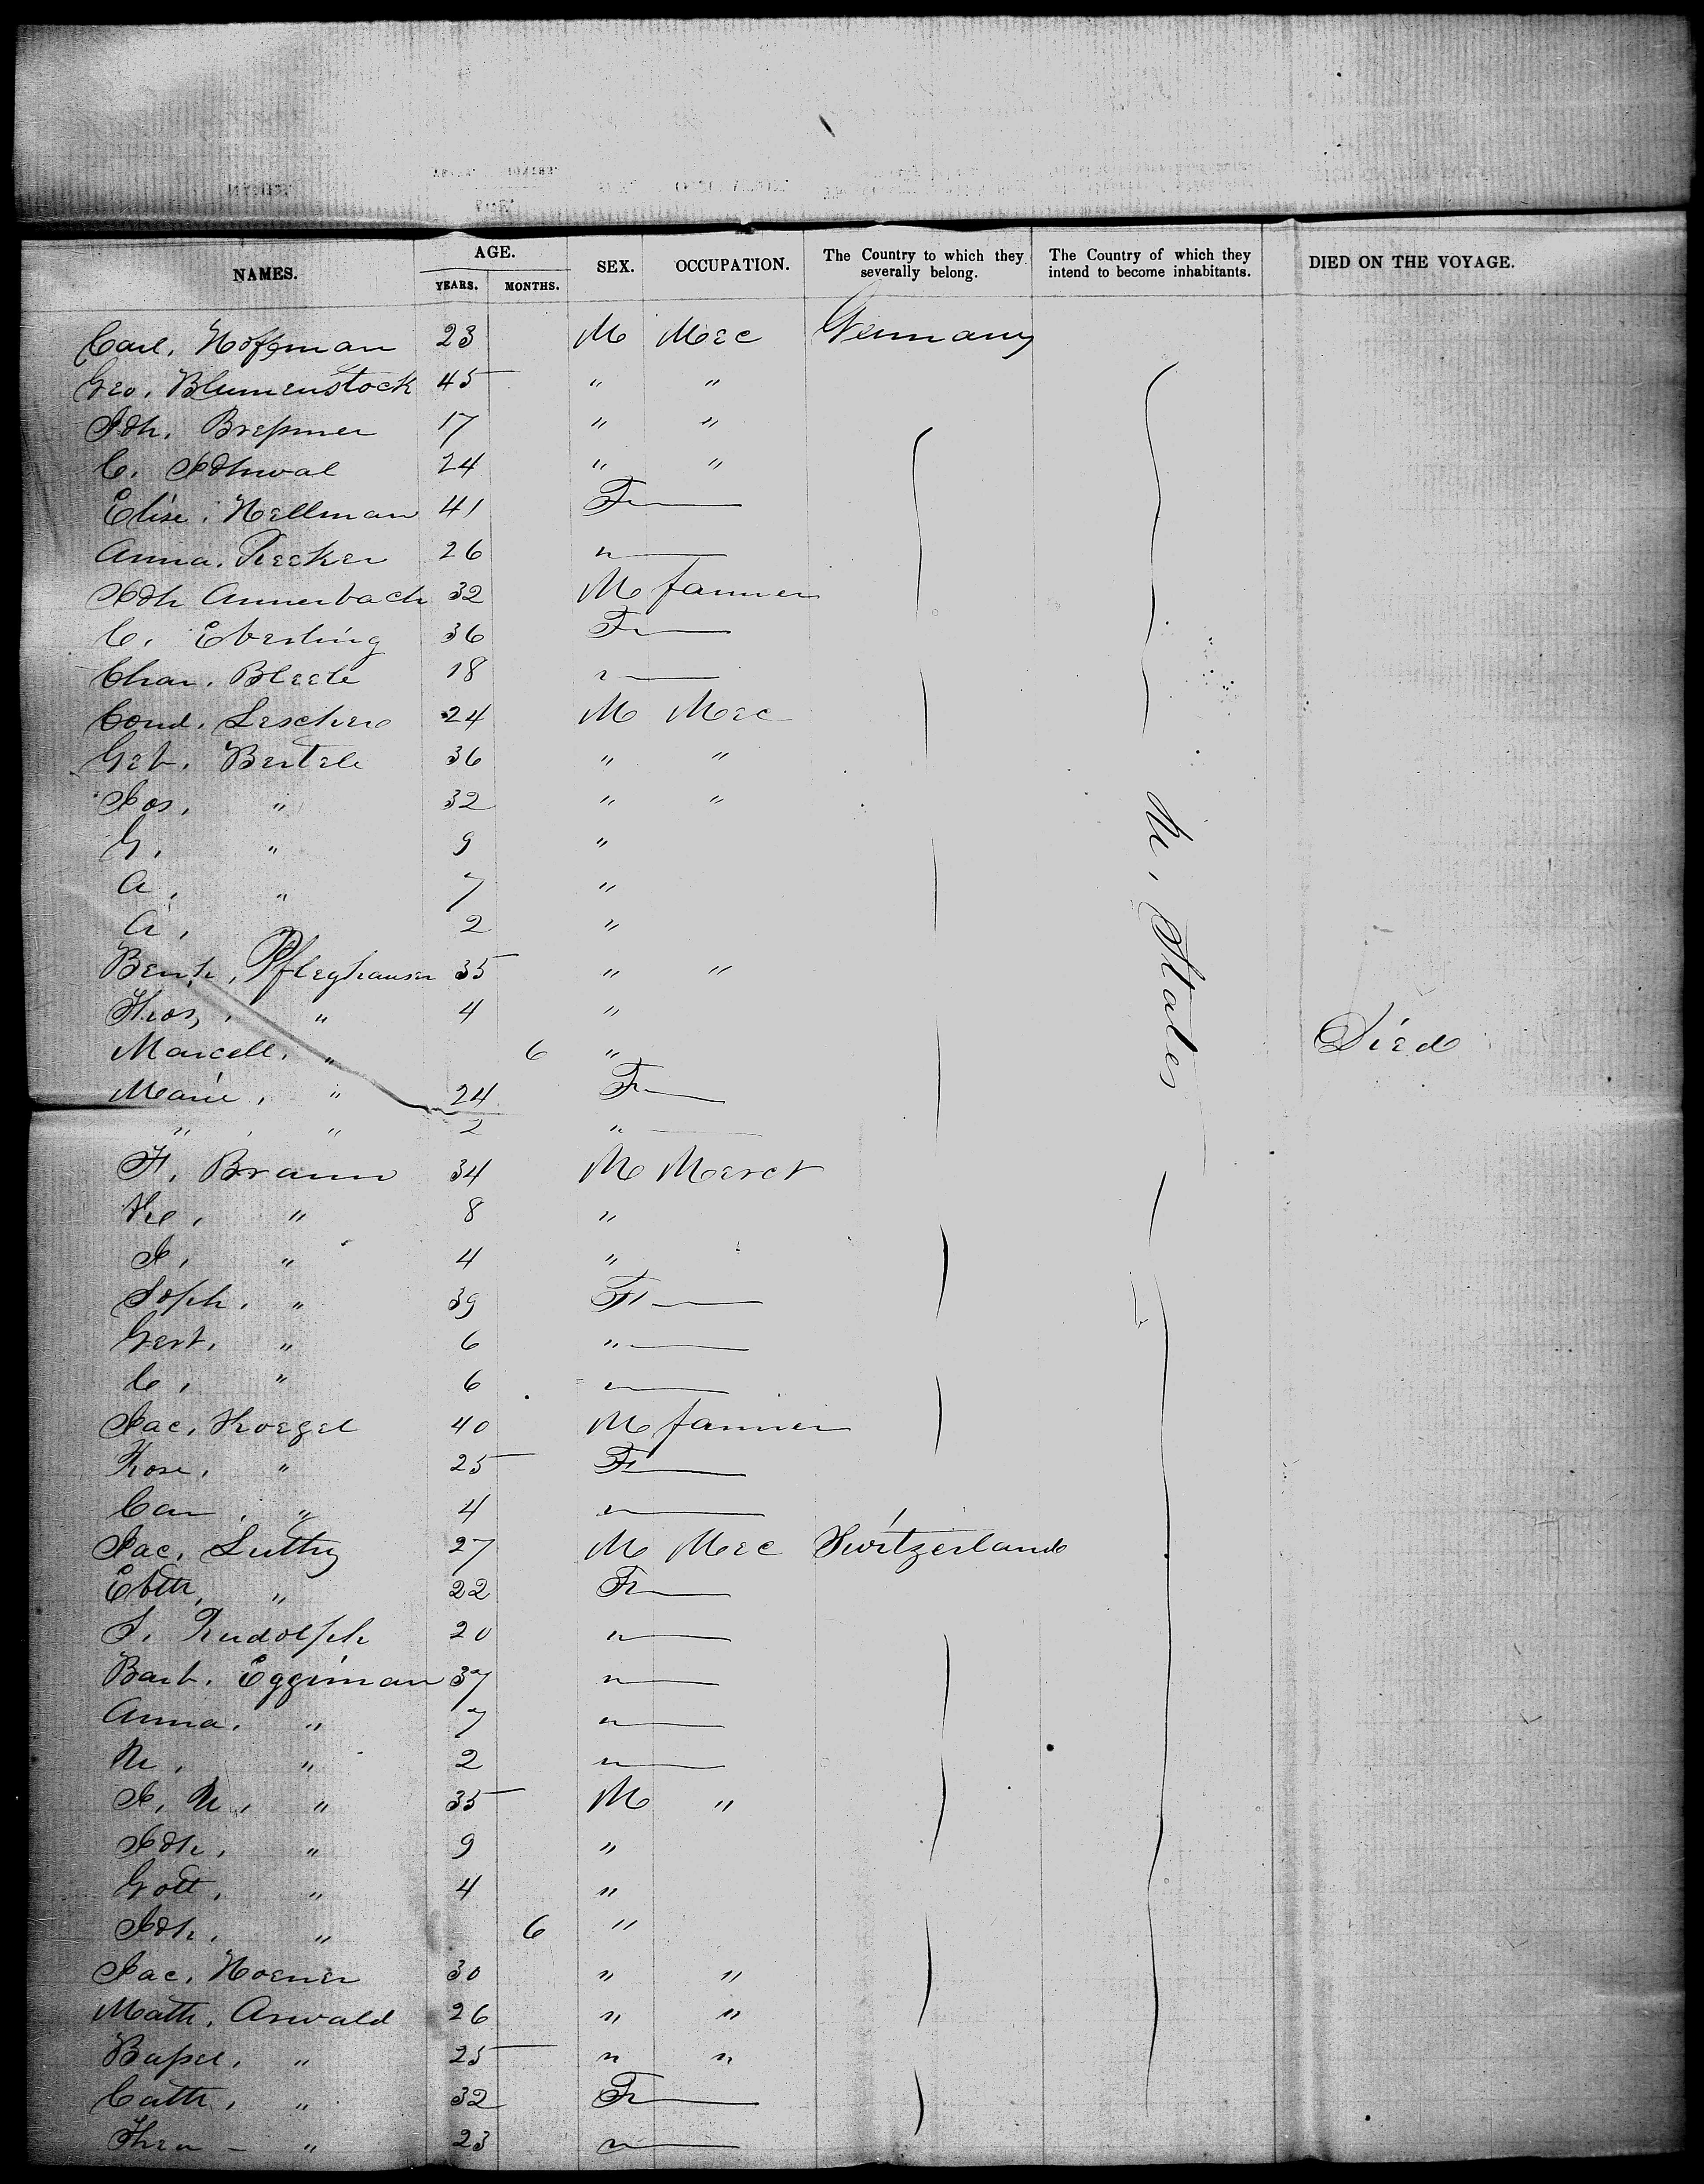 NAMES. AGE. YEARS. MONTHS. SEX. OCCUPATION. The Country to which they severally belong. The Country of which they intend to become inhabitants. DIED ON THE VOYAGE.
Carl. Hoffman 23 M Mec Germany
Geo. Blumenstock 45 " "
Joh. Bressmer 17 " "
C. 24 " "
Elise. Hellman 41 F
Anna. Recker 26 "
Joh Annerbach 32 M farmer
C. Eberling 36 F
Char. Bleete 18 "
Cond. Leschen 24 M Mec
Geb. Bertele 36 " "
Jos. " 32 " "
G. " 9 "
A. " 7 "
A. 2 "
Benh. Pfleghauser 35 " "
" 4 "
Marcell. " 6 " Died
Marie. " 24 F
" " 2 "
F. Braun 34 M Merct
" 8 "
J. " 4 "
Soph. " 39 F
Gert. " 6 "
C. " 6 "
Jac. Koegel 40 M farmer
Rose. " 25 F
Car. " 4 "
Jac. Luthy 27 M Mec Switzerland
Ebth. " 22 F
S. Rudolph 20 "
Barb. Eggiman 37 "
Anna. " 7 "
" 2 "
J. U. " 35 M "
Joh. " 9 "
Gott. " 4 "
Joh. " 6 "
Jac. Hoener 30 " "
Math. Aswald 26 " "
" 25 " "
Cath. " 32 F
" 23 "
U. States